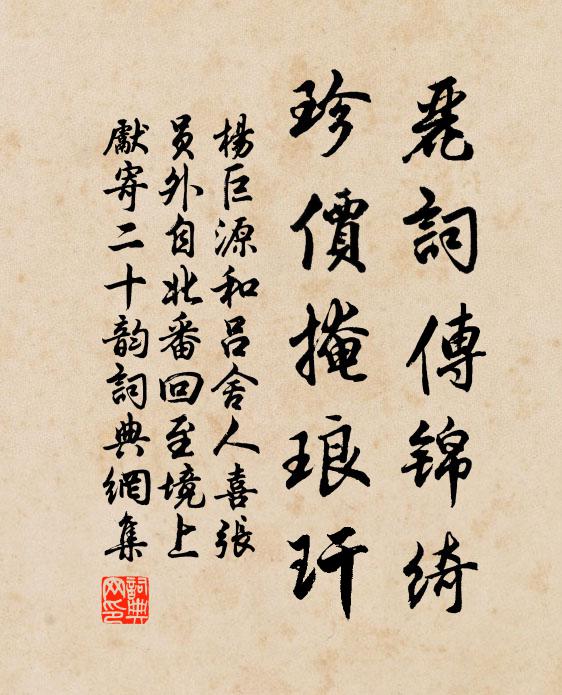 麗詞傳錦綺
珍價掩琅玕
楊巨源和吕舍人喜張
员外自北番回至境上
獻寄二十韵詞典網集
詞典
网印